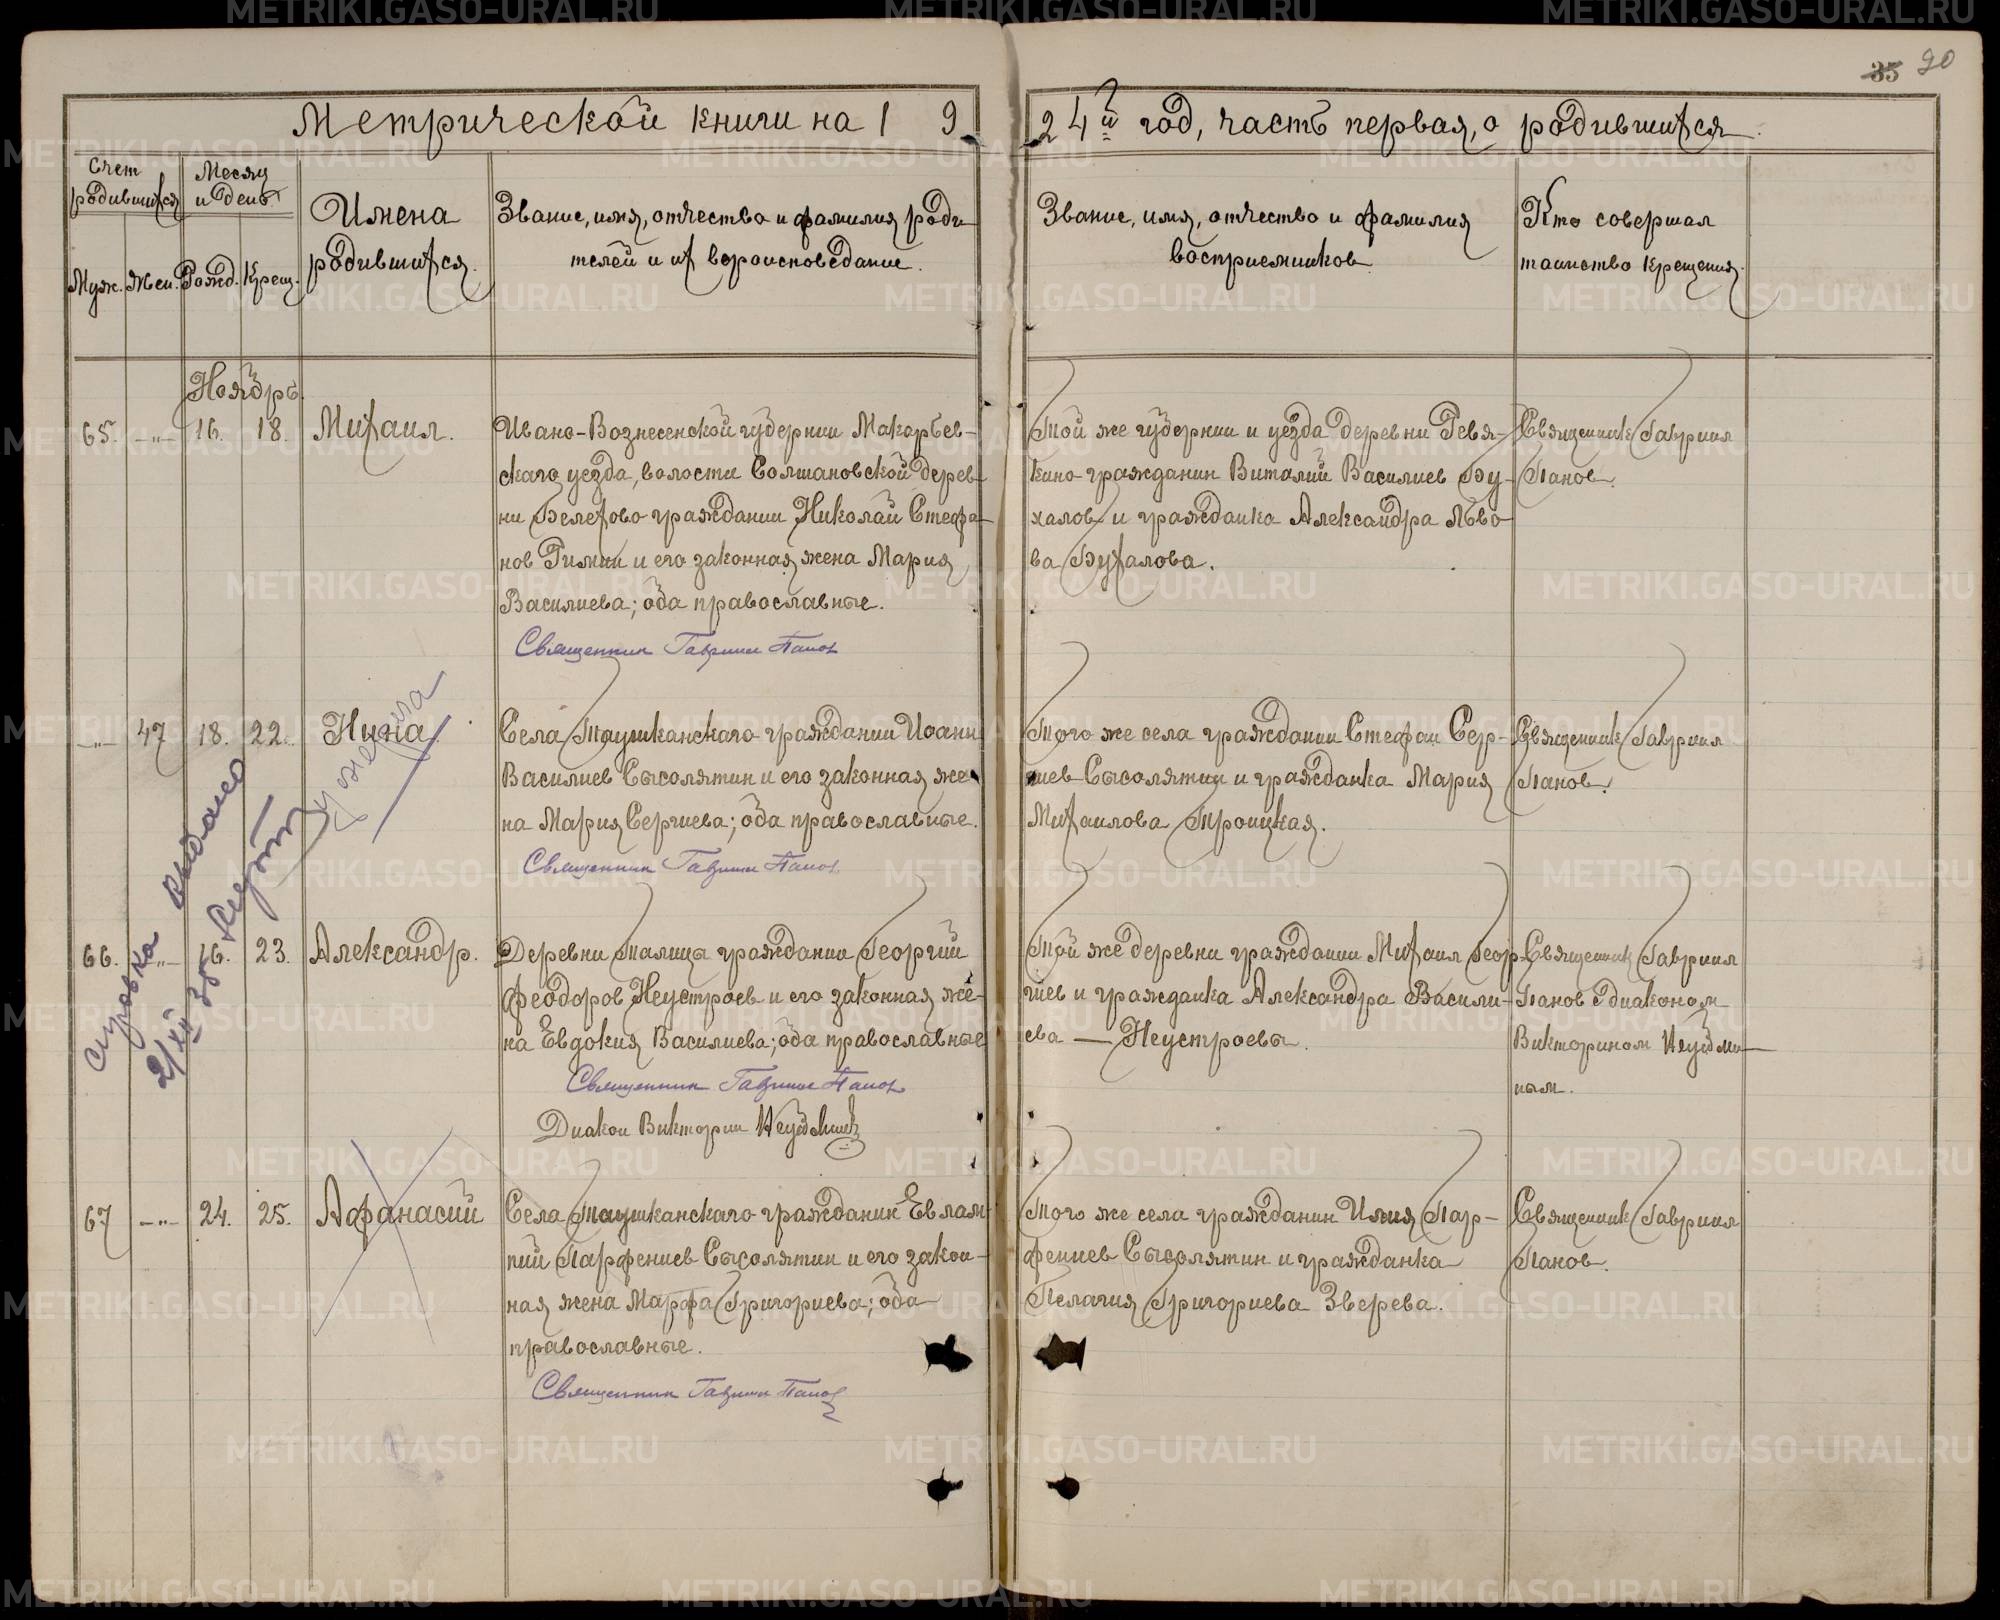 35 90
Метрической книги на 1924й год, часть первая, о родившихся.
Счет родившихся
Месяц и день.
Имена родившихся.
Звание, имя, отчество и фамилия роди-
телей и их вероисповедание.
Звание, имя, отчество и фамилия
восприемников
Кто совершал
таинство крещения.
Муж. Жен. Рожд. Крещ.
Ноябрь.
65. —"— 16. 18. Михаил.
Ивано-Вознесенской губернии Макарьев-
скаго уезда, волости Солтановской дерев-
ни Белехово гражданин Николай Стефа-
нов Гимин и его законная жена Мария
Василиева; оба православные.
Священник Гавриил Панов
Той же губернии и уезда деревни Ревя-
кино гражданин Виталий Василиев Бу-
халов и гражданка Александра Льво-
ва Бухалова.
Священник Гавриил
Панов.
—"— 47 18. 22. Нина.
умерла
Села Таушканскаго гражданин Иоанн
Василиев Сысолятин и его законная же-
на Мария Сергиева; оба православные.
Священник Гавриил Панов
Того же села гражданин Стефан Сер-
гиев Сысолятин и гражданка Мария
Михаилова Троицкая.
Священник Гавриил
Панов.
справка выдана
2/XII 35
66. —"— 16. 23. Александр.
Деревни Талицы гражданин Георгий
Феодоров Неустроев и его законная же-
на Евдокия Василиева; оба православные
Священник Гавриил Панов
Диакон Викторин
Той же деревни гражданин Михаил Геор-
гиев и гражданка Александра Васили-
ева — Неустроевы.
Священник Гавриил
Панов с диаконом
Викторином
ным.
67 —"— 24. 25. Афанасий
Села Таушканскаго гражданин Евлам-
пий Парфениев Сысолятин и его закон-
ная жена Марфа Григориева; оба
православные.
Священник Гавриил Панов
Того же села гражданин Илия Пар-
фениев Сысолятин и гражданка
Пелагия Григориева Зверева.
Священник Гавриил
Панов.
METRIKI.GASO-URAL.RU